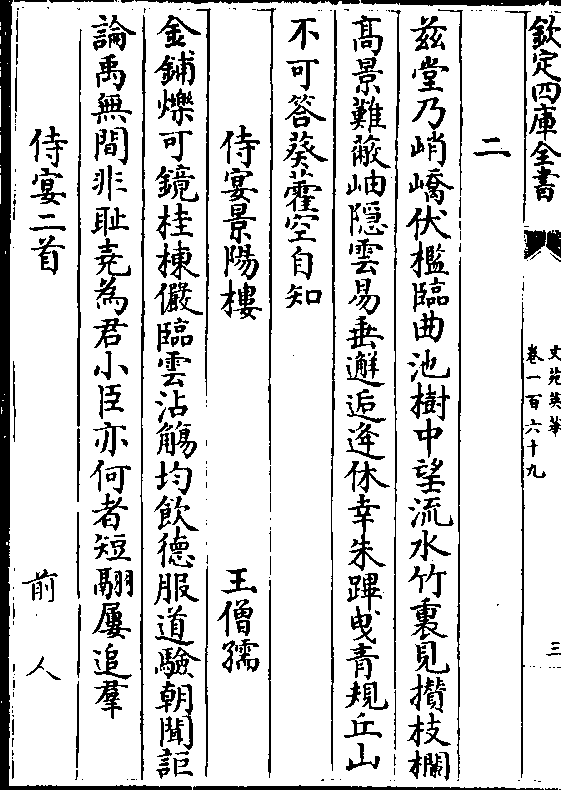 欽定四庫全書
文苑英華
卷一百六十九
三
二
兹堂乃峭嶠伏檻臨曲池樹中望流水竹裏見攢枝欄
髙景難蔽岫隱雲易垂邂逅逄休幸朱蹕曵青規丘山
不可答葵藿空自知
侍宴景陽樓
王僧孺
金鋪爍可鏡桂棟儼臨雲沾觴均飲德服道驗朝聞詎
論禹無間非耻堯為君小臣亦何者短翮屢追羣
侍宴二首
前人